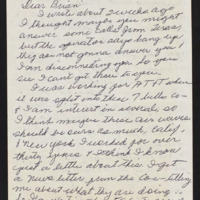 Dear Brian
I wrote about 2 weeks ago
I thought maybe you might
answer some calls from Texas,
but the operator says hang up,
they are not gonna answer you I
am disconnecting you. So you
see I can't get thru to you.
I was working for ATT when
it was split into those 7 billion co-
I am interest in several, so
I think maybe these air waves
should be ours as much, Calif,
New York, I worked for over
thirty years & I think I know
just a little about this. I got
a News letter from the Co- telling
me about what they are doing